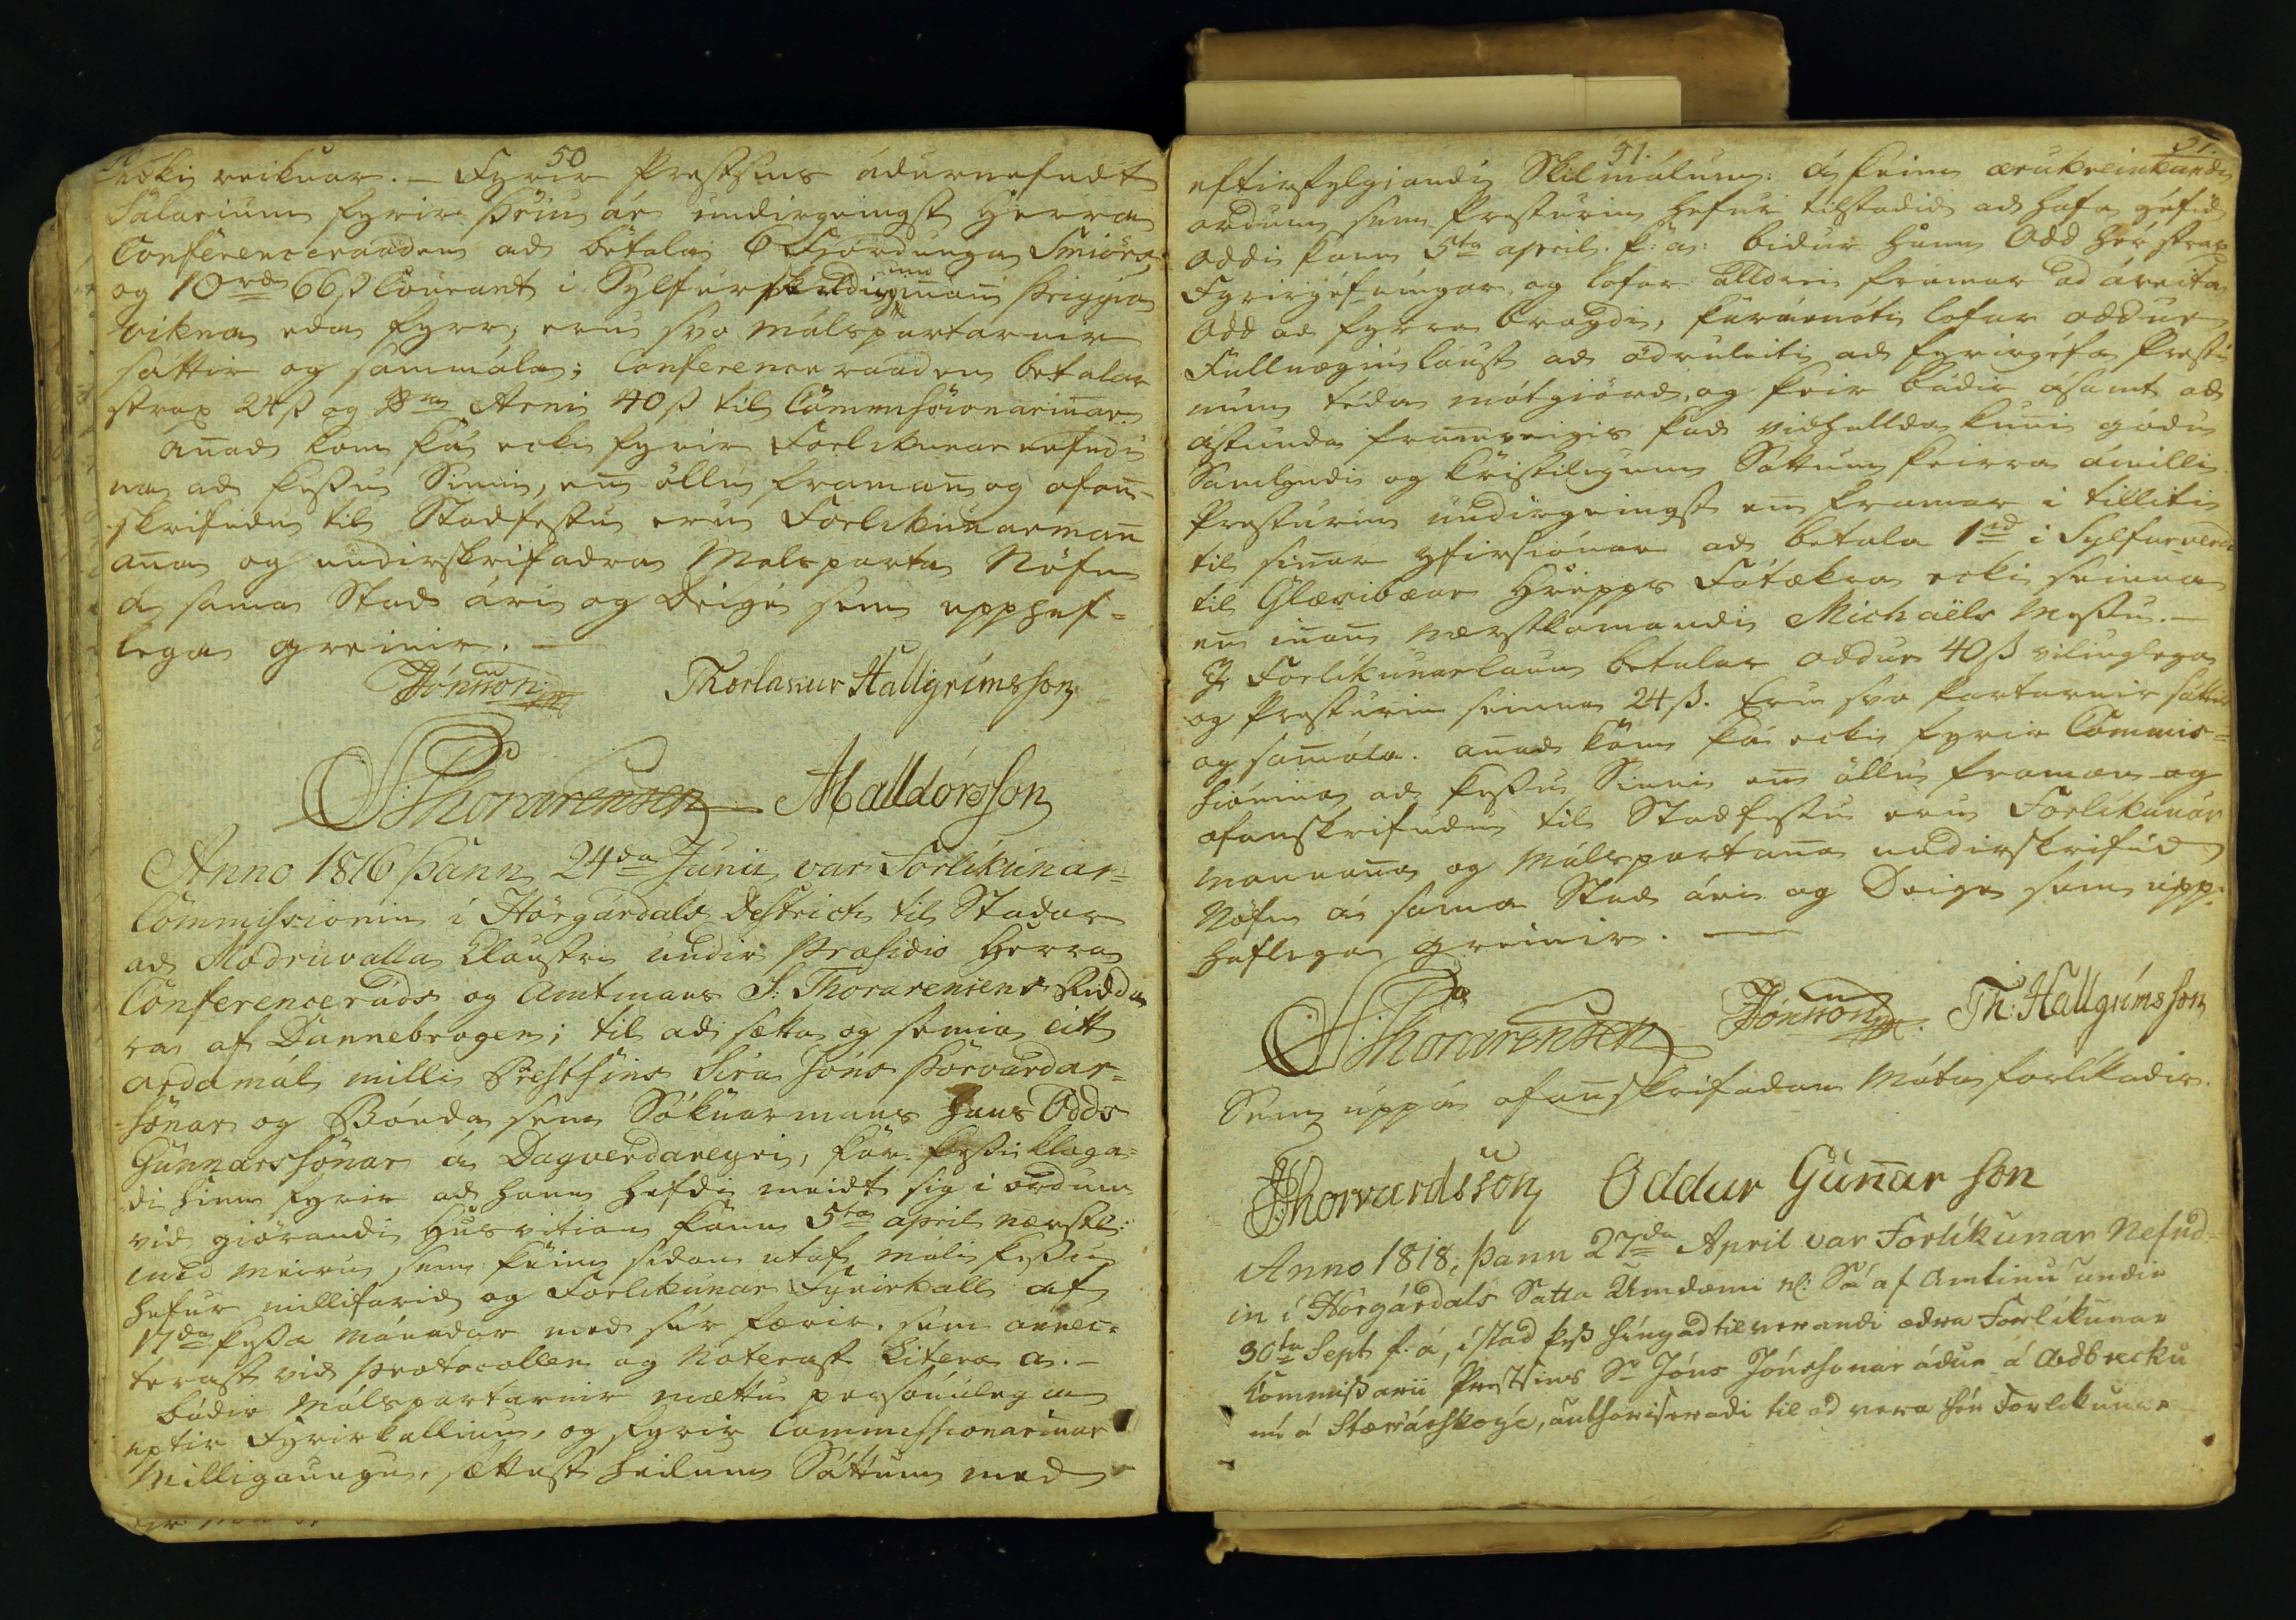 50
ecki reiknar. – Fyrir Prestsins ádurnefndt
Salarium fyrir þriu ár undirgeingst Herra
Conferenceraaden ad betala 6 Fjórdunga Smiörs
og 10rd 66ß Courant i Sylfurskildingum innan þriggia
vikna eda fyrr, eru svo málspartarnir
sáttir og sammála; Conferenceraaden betalar
strax 24ß og Arni 40ß til Commissionarinnar.
Annad kom þá ecki fyrir Forlikunar nefndi
na ad þessu Sinni, enn öllu framann og ofan-
skrifudu til Stadfestu eru Forlikunarmann
anna og undirskrifadra Malsparta Nöfn
á sama Stad ári og Deigi sem upphaf-
lega greinir. –
Jónsson Thorlakur Hallgrímsson
S Thorarensen AHalldórsson
Anno 1816 þann 24da Junii var Forlíkunar-
Commissionin i Hörgárdals District til Stadar
ad Mödruvalla Claustri undir Præsidio Herra
Conferenceráds og Amtmans S: Thorarensens Ridda
ra af Dannebrogen; til ad sætta og semia eitt
ordamál milli Prestsins Sira Jóns Þorvardar-
sonar og Bónda sem Sóknarmans hans Odds
Gunnarssonar á Dagverdareyri, þar þessi klaga-
di hinn fyrir ad hann hefdi meidt sig i ordum
vid giörandi Húsvitian þann 5ta april næstl:
med meiru sem þeim sidan útaf máli þessu
hefur millifarid og Forlikunar Fyrirkall af
17da þessa mánadar med sér færir, sem annec-
terast vid Protocollen og Noterast Litera a. –
Bádir Málspartarnir mættu persónulega
eptir Fyrirkallinu, og fyrir Commissionarinnar
Milligaungu, sættast heilum Sáttum med
51.
51.
eftirfylgiandi Skilmálum: á þeim ærukreinkandi
ordum sem Presturin hefur tilstadid ad hafa géfid
Oddi þann 5ta april þ: á: bidur hann Odd hér strax
Fyrirgéfningar, og lofar alldrei framar ad áreita
Odd ad fyrra bragdi, þarámóti lofar Oddur
Fullnæginlaust ad ödruleiti ad fyrirgéfa Presti
num téda mótgiörd, og þeir bádir ásamt ad
ástunda framveigis þad vidhallda kunni gódu
Samlyndi og kristilegum Sáttum þeirra ámilli.
Presturin undirgeingst enn framar i tilliti
til sinar yfirsiónar ad betala 1rd i Sylfurverdi
til Glæsibæar Hrepps Fátækra ecki seinna
enn innan næstkomandi Michaëls Messu. –
I Forlíkunarlaun betalar Oddur 40ß vilinglega
og Presturin sinna 24ß. Eru svo Partarnir sáttir
og sammála. annad kom þá ecki fyrir Commis-
siónina ad þessu Sinni enn öllu framan og
ofanskrifudu til Stadfestu eru Forlíkunar
mannanna og Málspartanna undirskrifud
Nöfn á sama Stad ári og Deigi sem upp-
haflega greinir. –
S Thorarensen Jónsson Th: Hallgrímsson
Sem uppá ofannskrifadan Máta forlíkadir.
JThorvardsson Oddur Gunnar son
Anno 1818, þann 27da April var Forlíkunar Nefnd-
in i Hörgárdals Sátta Umdæmi nl: Sú af Amtinu undir
30ta Sept f. á, í stad þess híngad til verandi ædra Forlíkunar
Kommissarii Prestsins Sr Jóns Jónssonar ádur á Ædbrecku
nú á Stærraárskogi, authoriseradi til ad vera hér Forlíkunar